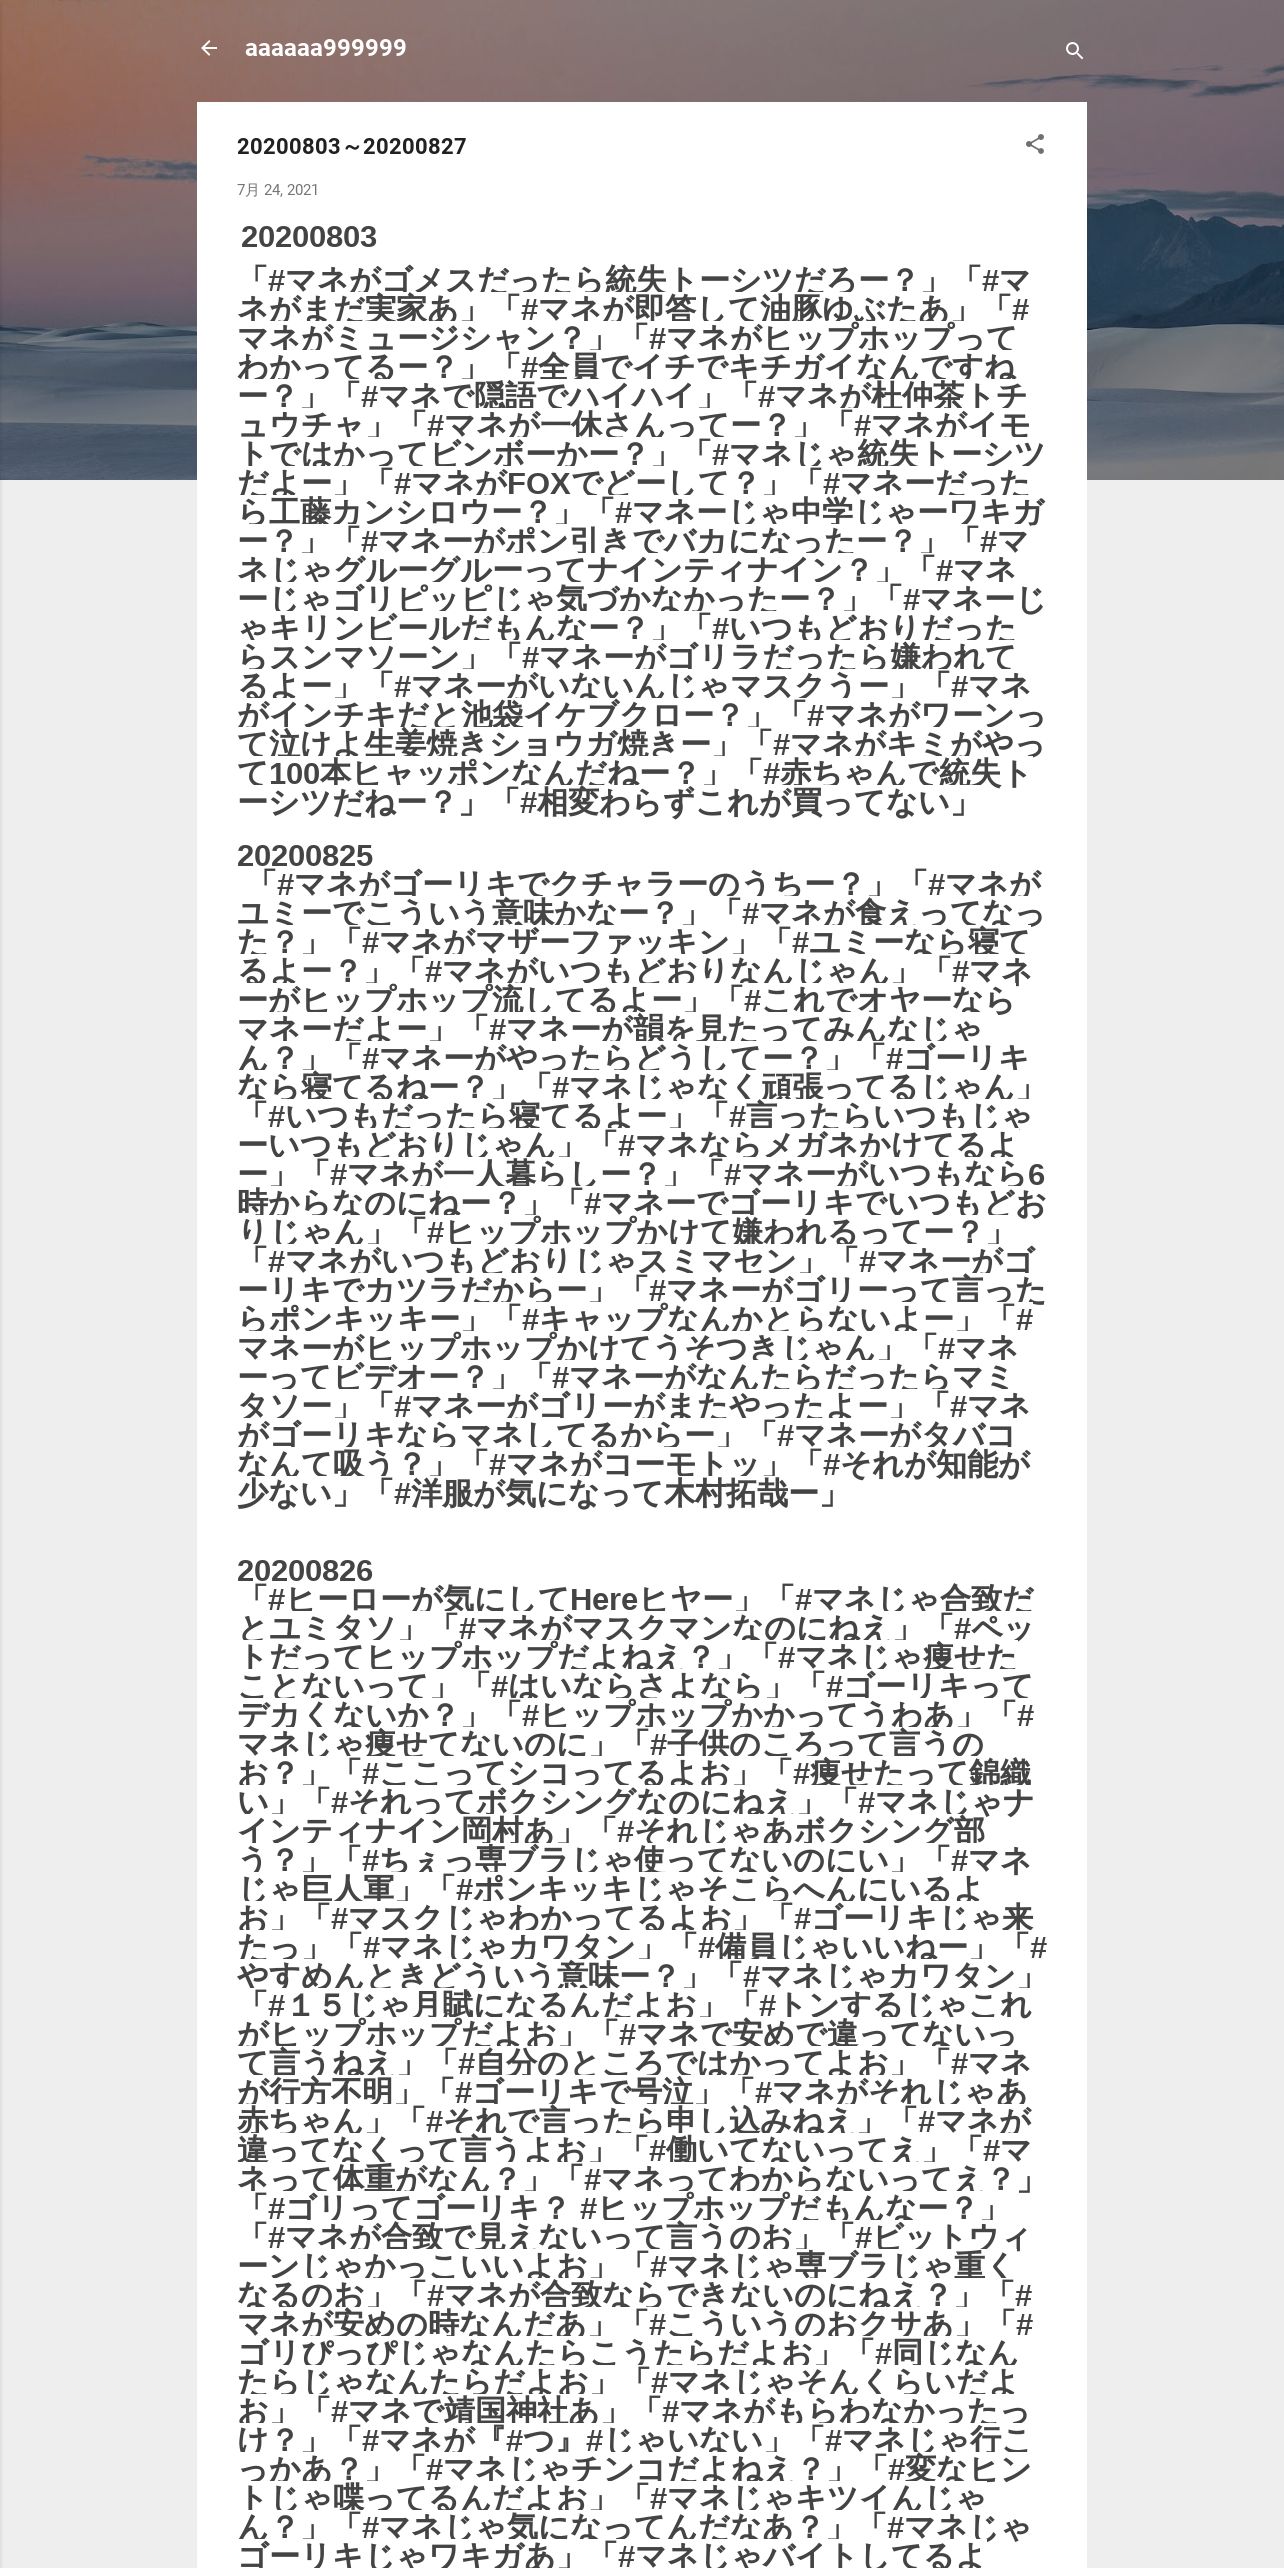 aaaaaa999999
20200803～20200827
7月 24, 2021
20200803
「#マネがゴメスだったら統失トーシツだろー？」「#マ
ネがまだ実家あ」「#マネが即答して油豚ゆぶたあ」「#
マネがミュージシャン？」「#マネがヒップホップって
わかってるー？」「#全員でイチでキチガイなんですね
ー？」「#マネで隠語でハイハイ」「#マネが杜仲茶トチ
ュウチャ」「#マネが一休さんってー？」「#マネがイモ
トではかってビンボーかー？」「#マネじゃ統失トーシツ
だよー」「#マネがFOXでどーして？」「#マネーだった
ら工藤カンシロウー？」「#マネーじゃ中学じゃーワキガ
ー？」「#マネーがポン引きでバカになったー？」「#マ
ネじゃグルーグルーってナインティナイン？」「#マネ
ーじゃゴリピッピじゃ気づかなかったー？」「#マネーじ
ゃキリンビールだもんなー？」「#いつもどおりだった
らスンマソーン」「#マネーがゴリラだったら嫌われて
るよー」「#マネーがいないんじゃマスクうー」「#マネ
がインチキだと池袋イケブクロー？」「#マネがワーンっ
て泣けよ生姜焼きショウガ焼きー」「#マネがキミがやっ
て100本ヒャッポンなんだねー？」「#赤ちゃんで統失ト
ーシツだねー？」「#相変わらずこれが買ってない」
20200825
「#マネがゴーリキでクチャラーのうちー？」「#マネが
ユミーでこういう意味かなー？」「#マネが食えってなっ
た？」「#マネがマザーファッキン」「#ユミーなら寝て
るよー？」「#マネがいつもどおりなんじゃん」「#マネ
ーがヒップホップ流してるよー」「#これでオヤーなら
マネーだよー」「#マネーが韻を見たってみんなじゃ
ん？」「#マネーがやったらどうしてー？」「#ゴーリキ
なら寝てるねー？」「#マネじゃなく頑張ってるじゃん」
「#いつもだったら寝てるよー」「#言ったらいつもじゃ
ーいつもどおりじゃん」「#マネならメガネかけてるよ
ー」「#マネが一人暮らしー？」「#マネーがいつもなら6
時からなのにねー？」「#マネーでゴーリキでいつもどお
りじゃん」「#ヒップホップかけて嫌われるってー？」
「#マネがいつもどおりじゃスミマセン」「#マネーがゴ
ーリキでカツラだからー」「#マネーがゴリーって言った
らポンキッキー」「#キャップなんかとらないよー」「#
マネーがヒップホップかけてうそつきじゃん」「#マネ
ーってビデオー？」「#マネーがなんたらだったらマミ
タソー」「#マネーがゴリーがまたやったよー」「#マネ
がゴーリキならマネしてるからー」「#マネーがタバコ
なんて吸う？」「#マネがコーモトッ」「#それが知能が
少ない」「#洋服が気になって木村拓哉ー」
20200826
「#ヒーローが気にしてHereヒヤー」「#マネじゃ合致だ
とユミタソ」「#マネがマスクマンなのにねえ」「#ペッ
トだってヒップホップだよねえ？」「#マネじゃ痩せた
ことないって」「#はいならさよなら」「#ゴーリキって
デカくないか？」「#ヒップホップかかってうわあ」「#
マネじゃ痩せてないのに」「#子供のころって言うの
お？」「#ここってシコってるよお」「#痩せたって錦織
い」「#それってボクシングなのにねえ」「#マネじゃナ
インティナイン岡村あ」「#それじゃあボクシング部
う？」「#ちぇっ専ブラじゃ使ってないのにい」「#マネ
じゃ巨人軍」「#ポンキッキじゃそこらへんにいるよ
お」「#マスクじゃわかってるよお」「#ゴーリキじゃ来
たっ」「#マネじゃカワタン」「#備員じゃいいねー」「#
やすめんときどういう意味ー？」「#マネじゃカワタン」
「#１５じゃ月賦になるんだよお」「#トンするじゃこれ
がヒップホップだよお」「#マネで安めで違ってないっ
て言うねえ」「#自分のところではかってよお」「#マネ
が行方不明」「#ゴーリキで号泣」「#マネがそれじゃあ
赤ちゃん」「#それで言ったら申し込みねえ」「#マネが
違ってなくって言うよお」「#働いてないってえ」「#マ
ネって体重がなん？」「#マネってわからないってえ？」
「#ゴリってゴーリキ？ #ヒップホップだもんなー？」
「#マネが合致で見えないって言うのお」「#ビットウィ
ーンじゃかっこいいよお」「#マネじゃ専ブラじゃ重く
なるのお」「#マネが合致ならできないのにねえ？」「#
マネが安めの時なんだあ」「#こういうのおクサあ」「#
ゴリぴっぴじゃなんたらこうたらだよお」「#同じなん
たらじゃなんたらだよお」「#マネじゃそんくらいだよ
お」「#マネで靖国神社あ」「#マネがもらわなかったっ
け？」「#マネが『#つ』#じゃいない」「#マネじゃ行こ
っかあ？」「#マネじゃチンコだよねえ？」「#変なヒン
トじゃ喋ってるんだよお」「#マネじゃキツイんじゃ
ん？」「#マネじゃ気になってんだなあ？」「#マネじゃ
ゴーリキじゃワキガあ」「#マネじゃバイトしてるよ